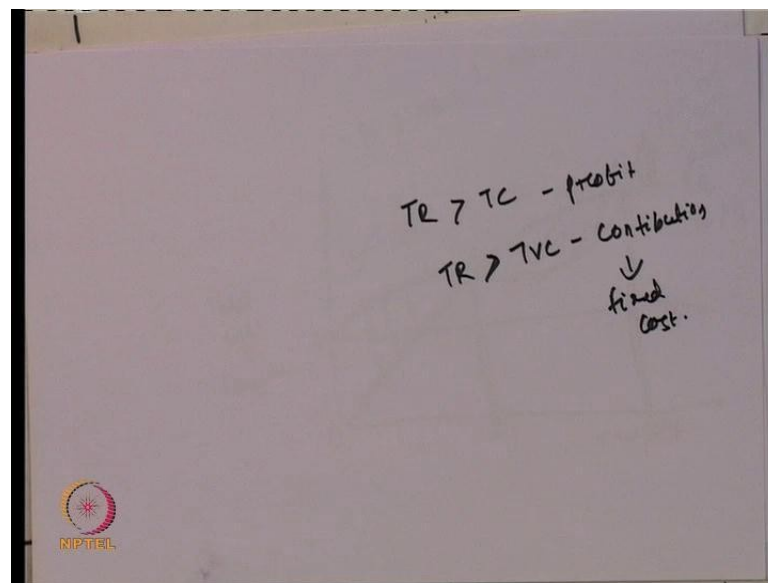 TR > TC - profit
TR > TVC - Contibution
↓
fixed
cost.
NPTEL